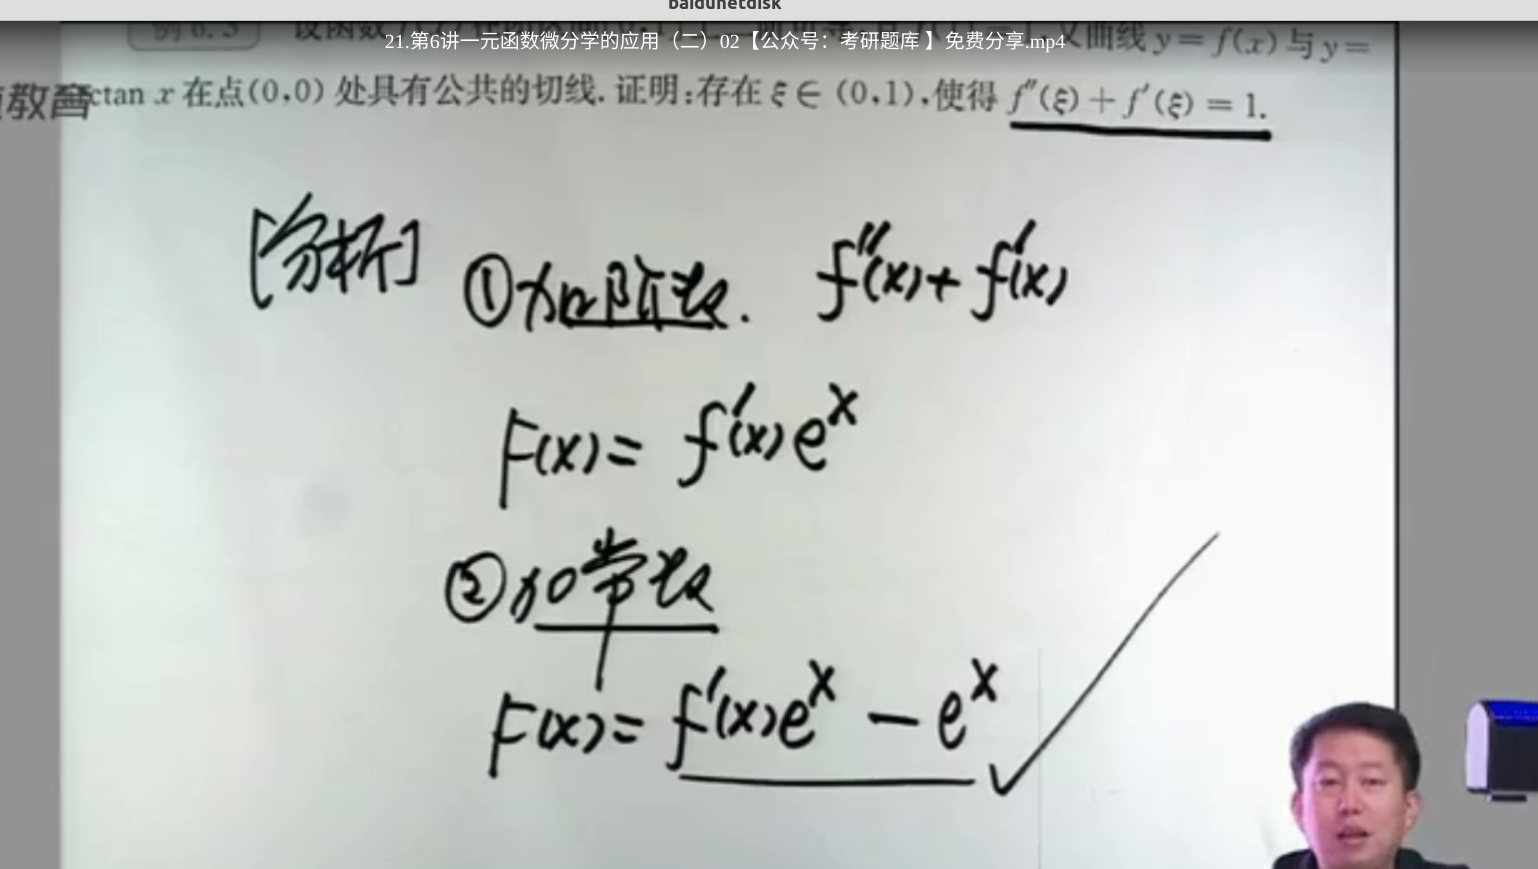 baidunetdisk
21.第6讲一元函数微分学的应用（二）02【公众号：考研题库 】免费分享.mp4
例 6.5 设函数 又曲线 y = f(x) 与 y =
教育 ctan x 在点(0,0) 处具有公共的切线. 证明:存在 ξ ∈ (0,1),使得 f″(ξ) + f′(ξ) = 1.
[分析] ①加阶数. f″(x)+f′(x)
F(x)= f′(x)eˣ
②加常数
F(x)= f′(x)eˣ − eˣ